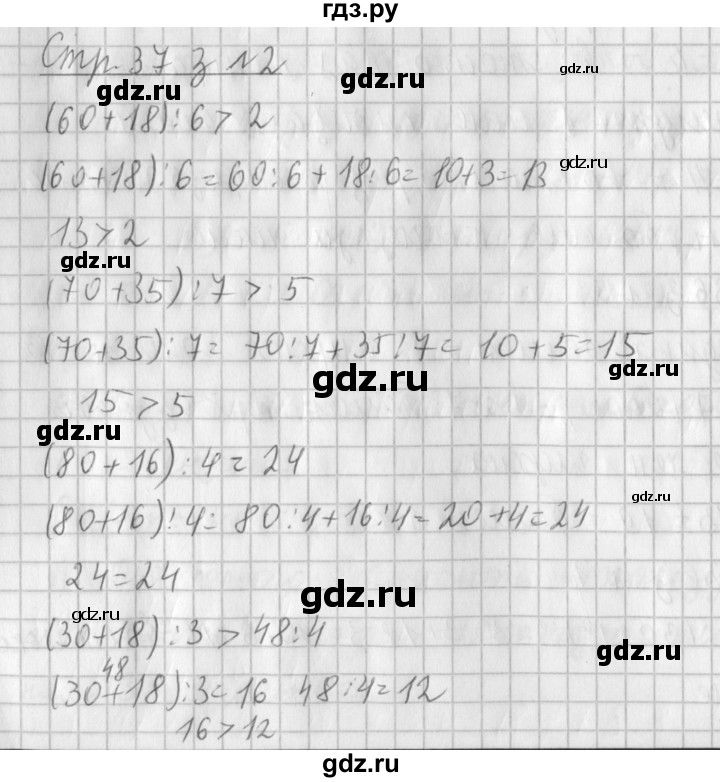 гдз.ру
Стр. 37 з №2
gdz.ru
gdz.ru
(60+18):6 > 2
(60+18):6 = 60:6 + 18:6 = 10+3=13
gdz.ru
13 > 2
gdz.ru
(70+35):7 > 5
(70+35):7 = 70:7+35:7 = 10+5=15
gdz.ru
gdz.ru
15 > 5
gdz.ru
(80+16):4 = 24
gdz.ru
(80+16):4 = 80:4+16:4=20+4=24
24=24
gdz.ru
gdz.ru
(30+18):3 > 48:4
gdz.ru
48
(30+18):3=16 48:4=12
16 > 12
gdz.ru